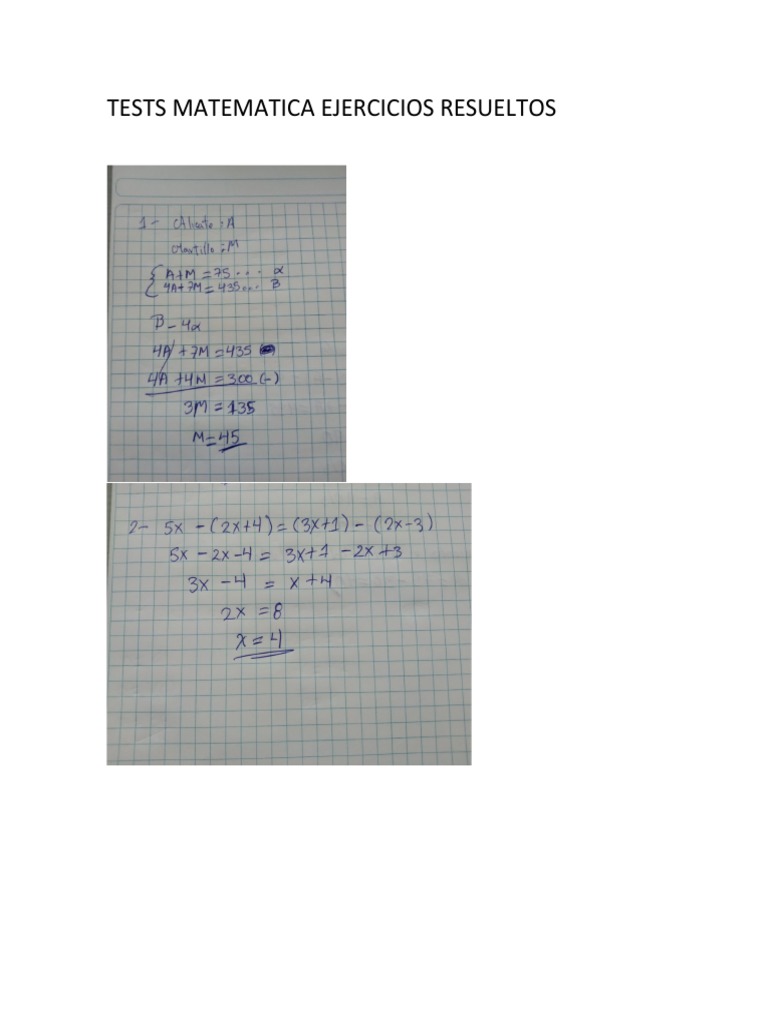 TESTS MATEMATICA EJERCICIOS RESUELTOS
1- Alicate : A
Martillo : M
{ A+M = 75 ... α
4A+7M = 435 ... B
B - 4α
4A + 7M = 435
4A + 4M = 300 (-)
3M = 135
M = 45
2- 5x - (2x+4) = (3x+1) - (2x-3)
5x - 2x - 4 = 3x+1 - 2x+3
3x - 4 = x+4
2x = 8
x = 4